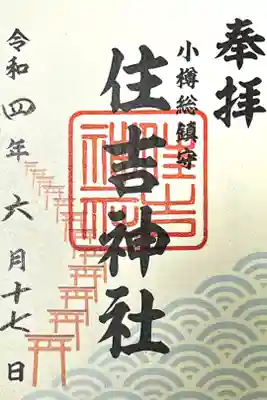 奉拝
小樽総鎮守
住吉神社
住吉神社
令和四年六月十七日